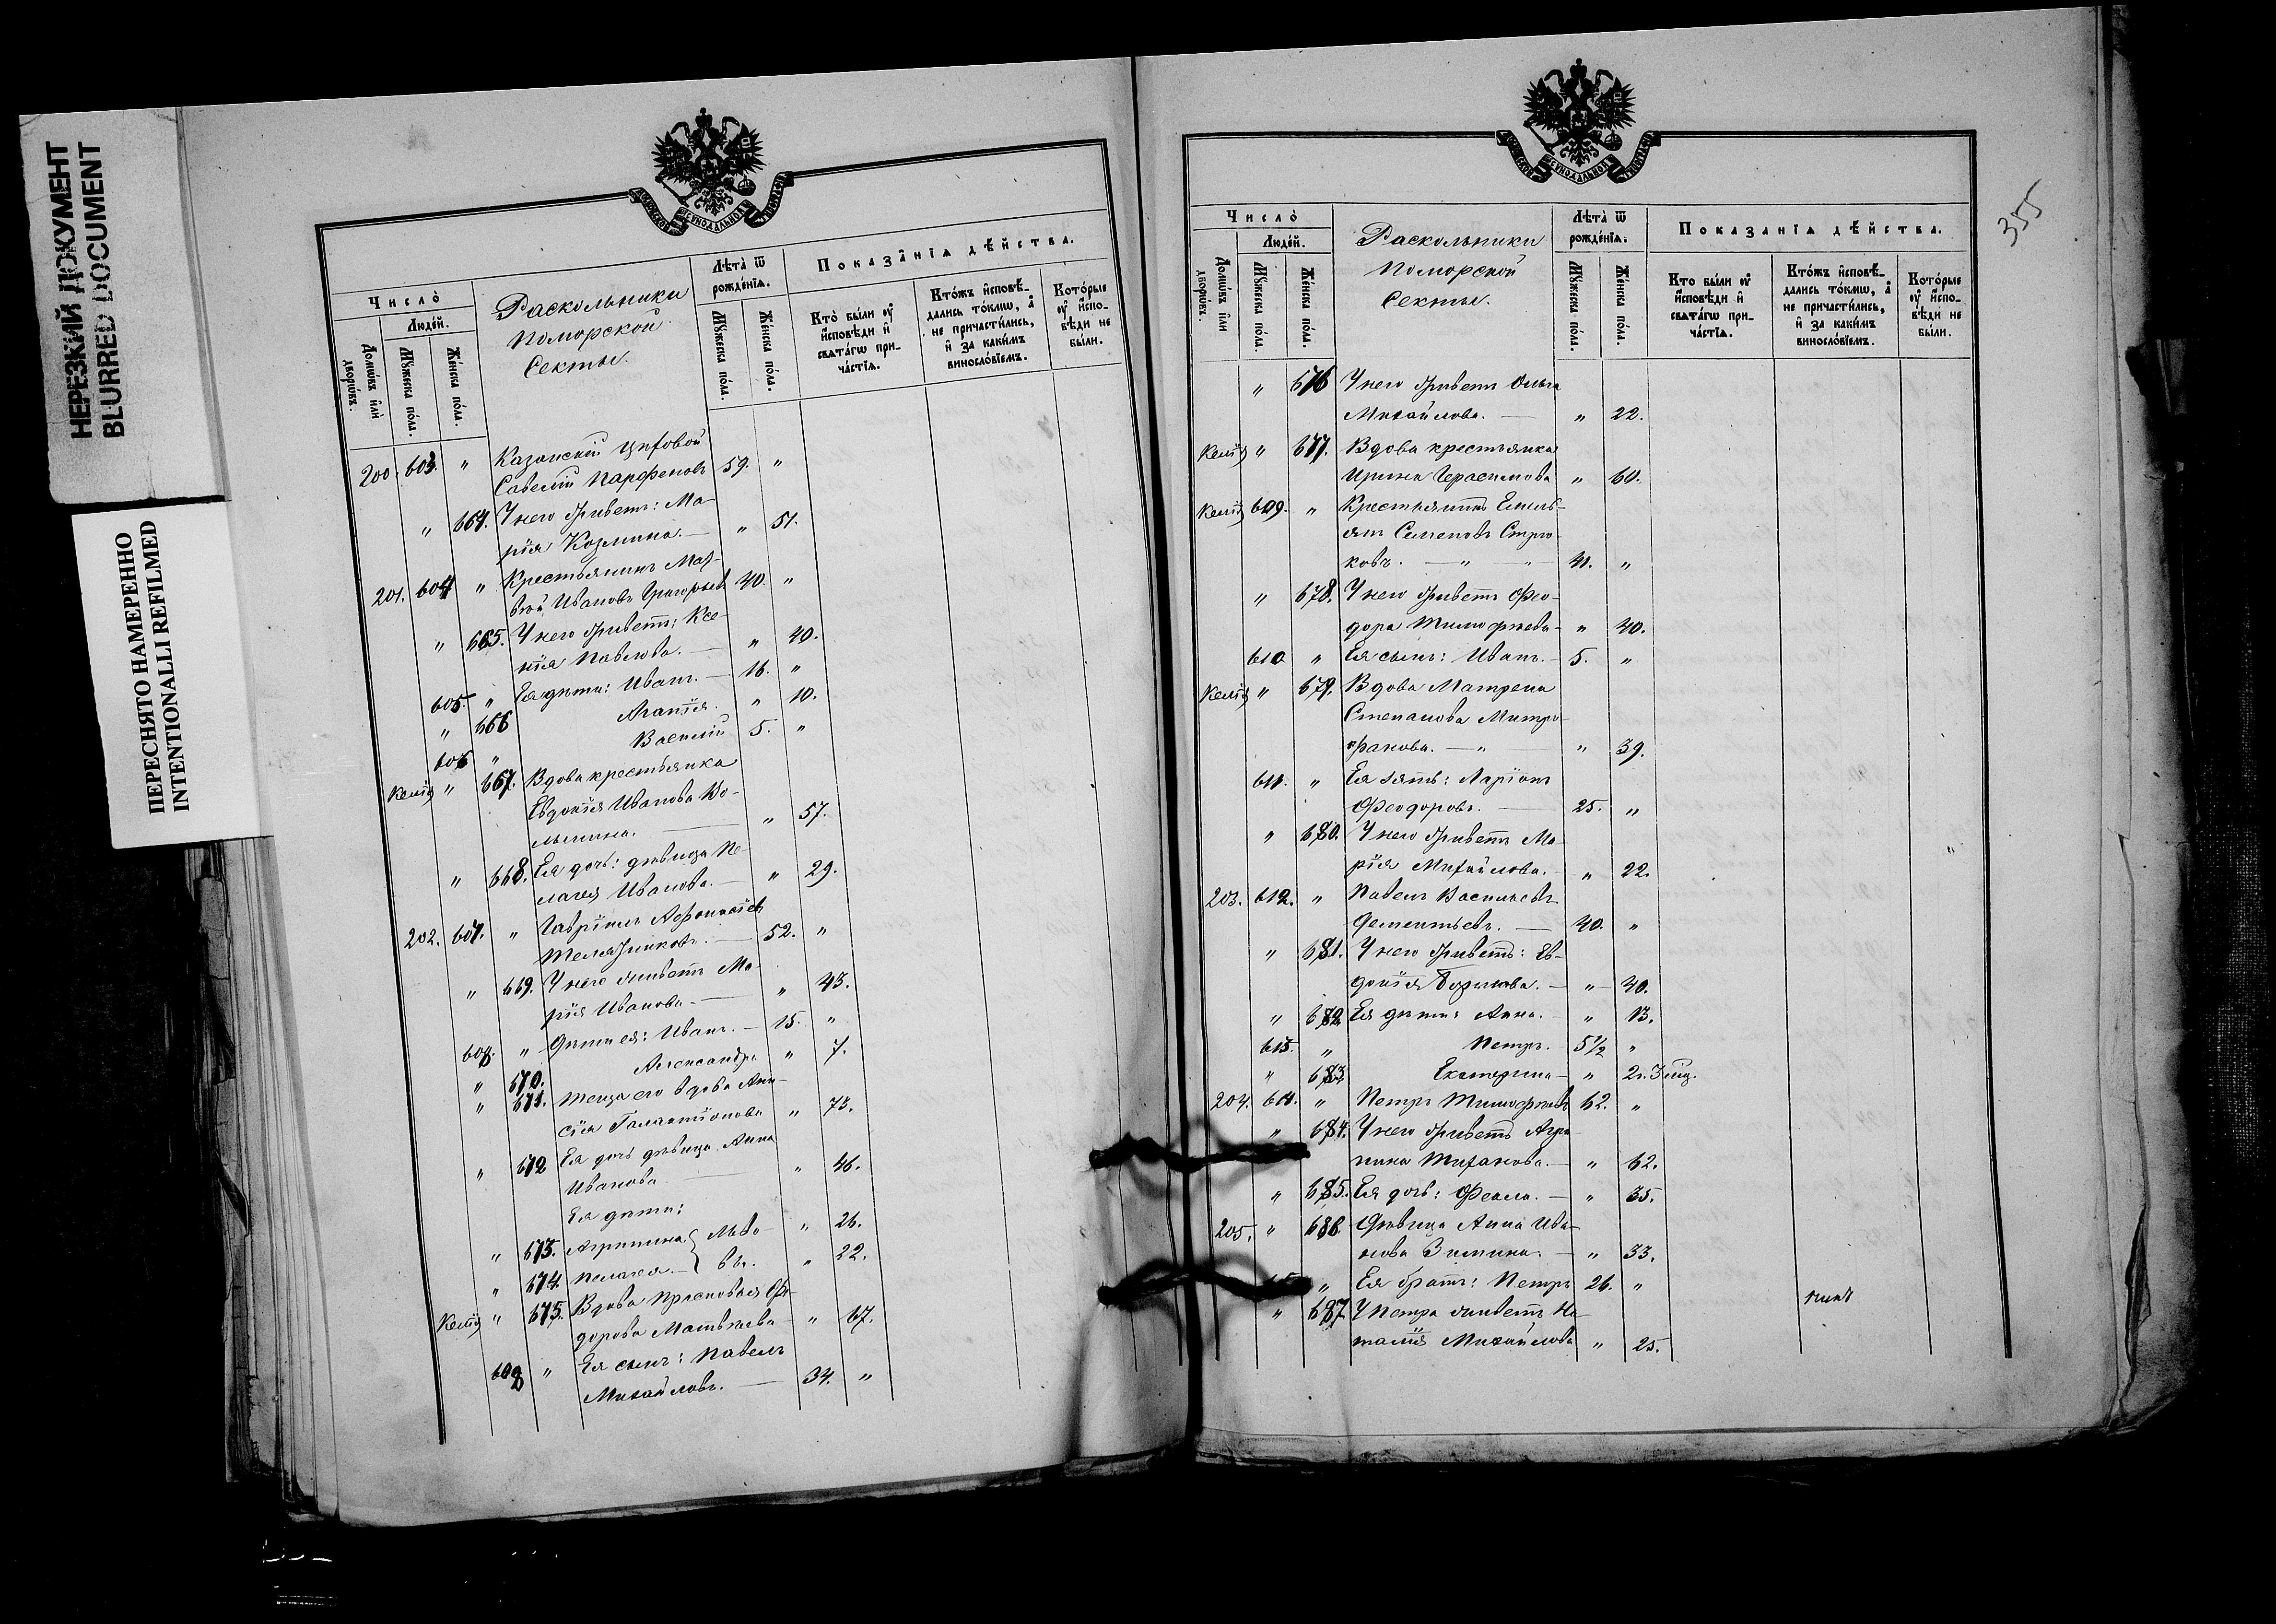 НЕРЕЗКИЙ ДОКУМЕНТ
BLURRED DOCUMENT
ПЕРЕСНЯТО НАМЕРЕННО
INTENTIONALLI REFILMED
Число̀
Людей.
Домѡвъ или дворѡвъ.
Мꙋжеска пола.
Женска пола.
Раскольники
Поморской
Секты.
Лѣта̀ ѿ рожденїѧ.
Мꙋжеска пола.
Женска пола.
Показанїѧ дѣйства.
Кто были оу исповѣди и свѧтагѡ причастїѧ.
Ктожъ исповѣдались токмѡ, а не причастились, и за какимъ винословїемъ.
Которые оу исповѣди не были.
200. 603. " Казанскій цеховой
Савелій Парфеновъ 59. "
" 664. У него живетъ: Ма-
рія Козмина. — " 51.
201. 604 " Крестьянинъ Мат-
вѣй Ивановъ Григорьевъ 40. "
" 665. У него живетъ: Ксе-
нія Павлова. — " 40.
605. " Ея дѣти: Иванъ. — 16. "
" 666 Агапія. " 10.
606 " Василій 5. "
Келія " 667. Вдова крестьянка
Евдокія Иванова
" 57.
" 668. Ея дочь: дѣвица Пе-
лагея Иванова. — " 29.
202. 607. " Гавріилъ
52. "
" 669. У него живетъ Ма-
рія Иванова — " 43.
608. " Дѣти ея: Иванъ. — 15. "
" 670. Александра " 7.
" 671. Теща его вдова Ани-
сія Галактіонова " 73.
" 672 Ея дочь дѣвица Анна
Иванова — " 46.
Ея дѣти:
" 673. Агрипина } Льво- " 26.
" 674. Пелагея. — } вы. " 22.
Келія " 675. Вдова Прасковья Фе-
дорова Матвѣева — " 67.
609 " Ея сынъ: Павелъ
Михайловъ. — 34. "
355
Число̀
Людей.
Домѡвъ или дворѡвъ.
Мꙋжеска пола.
Женска пола.
Раскольники
Поморской
Секты.
Лѣта̀ ѿ рожденїѧ.
Мꙋжеска пола.
Женска пола.
Показанїѧ дѣйства.
Кто были оу исповѣди и свѧтагѡ причастїѧ.
Ктожъ исповѣдались токмѡ, а не причастились, и за какимъ винословїемъ.
Которые оу исповѣди не были.
" 676 У него живетъ Ольга
Михайлова. — " 22.
Келія " 677. Вдова крестьянка
Ирина Герасимова " 60.
Келія 609. " Крестьянинъ Емель-
янъ Семеновъ Стрю-
ковъ. — " — 41. "
" 678. У него живетъ Фео-
дора Тимофѣева — " 40.
610 " Ея сынъ: Иванъ. — 5. "
Келія " 679. Вдова Матрена
Степанова Митро-
фанова. — " — " 39.
611. " Ея зять: Ларіонъ
Феодоровъ. — 25. "
" 680. У него живетъ Ма-
рія Михайлова. — " 22.
203. 612. " Павелъ Васильевъ
Дементьевъ. — 40. "
" 681. У него живетъ: Ев-
докія — " — 40.
" 682 Ея дѣти: Анна. — " 13.
613. " Петръ. — 5 1/2 "
" 683 Екатерина — " 2 г. 3 мц.
204. 614. " Петръ Тимофѣевъ 62. "
" 684. У него живетъ Агри-
пина — " 62.
" 685. Ея дочь: Фекла. — " 35.
205. " 686 Дѣвица Анна Ива-
нова Зимина. — " 33.
615 " Ея братъ: Петръ 26. "
" 687. У Петра живетъ На-
талія Михайлова " 25.